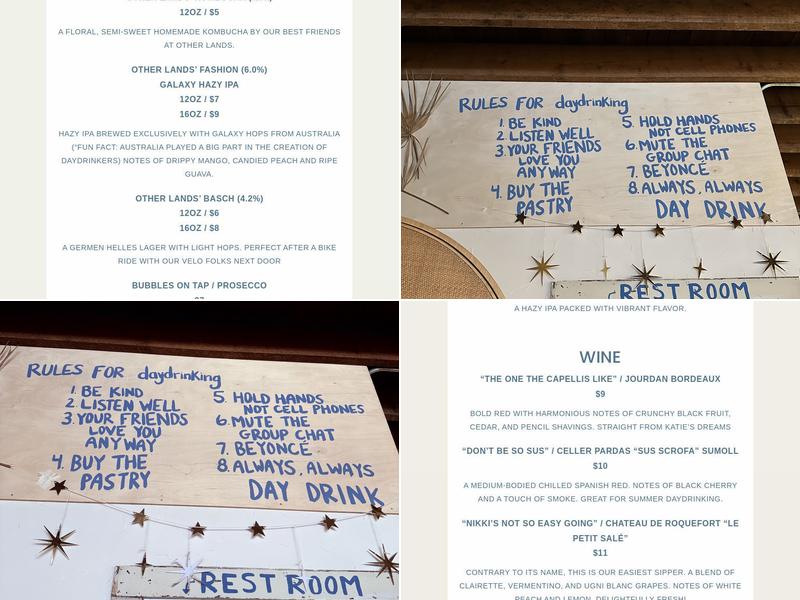 12OZ / $5
A FLORAL, SEMI-SWEET HOMEMADE KOMBUCHA BY OUR BEST FRIENDS
AT OTHER LANDS.
OTHER LANDS' FASHION (6.0%)
GALAXY HAZY IPA
12OZ / $7
16OZ / $9
HAZY IPA BREWED EXCLUSIVELY WITH GALAXY HOPS FROM AUSTRALIA
(*FUN FACT: AUSTRALIA PLAYED A BIG PART IN THE CREATION OF
DAYDRINKERS) NOTES OF DRIPPY MANGO, CANDIED PEACH AND RIPE
GUAVA.
OTHER LANDS' BASCH (4.2%)
12OZ / $6
16OZ / $8
A GERMEN HELLES LAGER WITH LIGHT HOPS. PERFECT AFTER A BIKE
RIDE WITH OUR VELO FOLKS NEXT DOOR
BUBBLES ON TAP / PROSECCO
RULES FOR daydrinking
1. BE KIND
2. LISTEN WELL
3. YOUR FRIENDS
LOVE YOU
ANYWAY
4. BUY THE
PASTRY
5. HOLD HANDS
NOT CELL PHONES
6. MUTE THE
GROUP CHAT
7. BEYONCÉ
8. ALWAYS, ALWAYS
DAY DRINK
REST ROOM
RULES FOR daydrinking
1. BE KIND
2. LISTEN WELL
3. YOUR FRIENDS
LOVE YOU
ANYWAY
4. BUY THE
PASTRY
5. HOLD HANDS
NOT CELL PHONES
6. MUTE THE
GROUP CHAT
7. BEYONCÉ
8. ALWAYS, ALWAYS
DAY DRINK
REST ROOM
A HAZY IPA PACKED WITH VIBRANT FLAVOR.
WINE
"THE ONE THE CAPELLIS LIKE" / JOURDAN BORDEAUX
$9
BOLD RED WITH HARMONIOUS NOTES OF CRUNCHY BLACK FRUIT,
CEDAR, AND PENCIL SHAVINGS. STRAIGHT FROM KATIE'S DREAMS
"DON'T BE SO SUS" / CELLER PARDAS "SUS SCROFA" SUMOLL
$10
A MEDIUM-BODIED CHILLED SPANISH RED. NOTES OF BLACK CHERRY
AND A TOUCH OF SMOKE. GREAT FOR SUMMER DAYDRINKING.
"NIKKI'S NOT SO EASY GOING" / CHATEAU DE ROQUEFORT "LE
PETIT SALÉ"
$11
CONTRARY TO ITS NAME, THIS IS OUR EASIEST SIPPER. A BLEND OF
CLAIRETTE, VERMENTINO, AND UGNI BLANC GRAPES. NOTES OF WHITE
PEACH AND LEMON. DELIGHTFULLY FRESH!